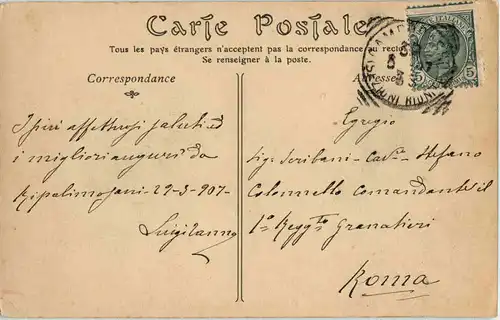 Carte Postale
Tous les pays étrangers n'acceptent pas la correspondance au recto
Se renseigner à la poste.
Correspondance
Adresse
I più affettuosi saluti ed
i migliori auguri da
Ripalimosani - 22-3-907-
Luigi
Egregio
Sig. Scribani - Cav.e Stefano
Colonnello Comandante il
1o Reggto Granatieri
Roma
5 5